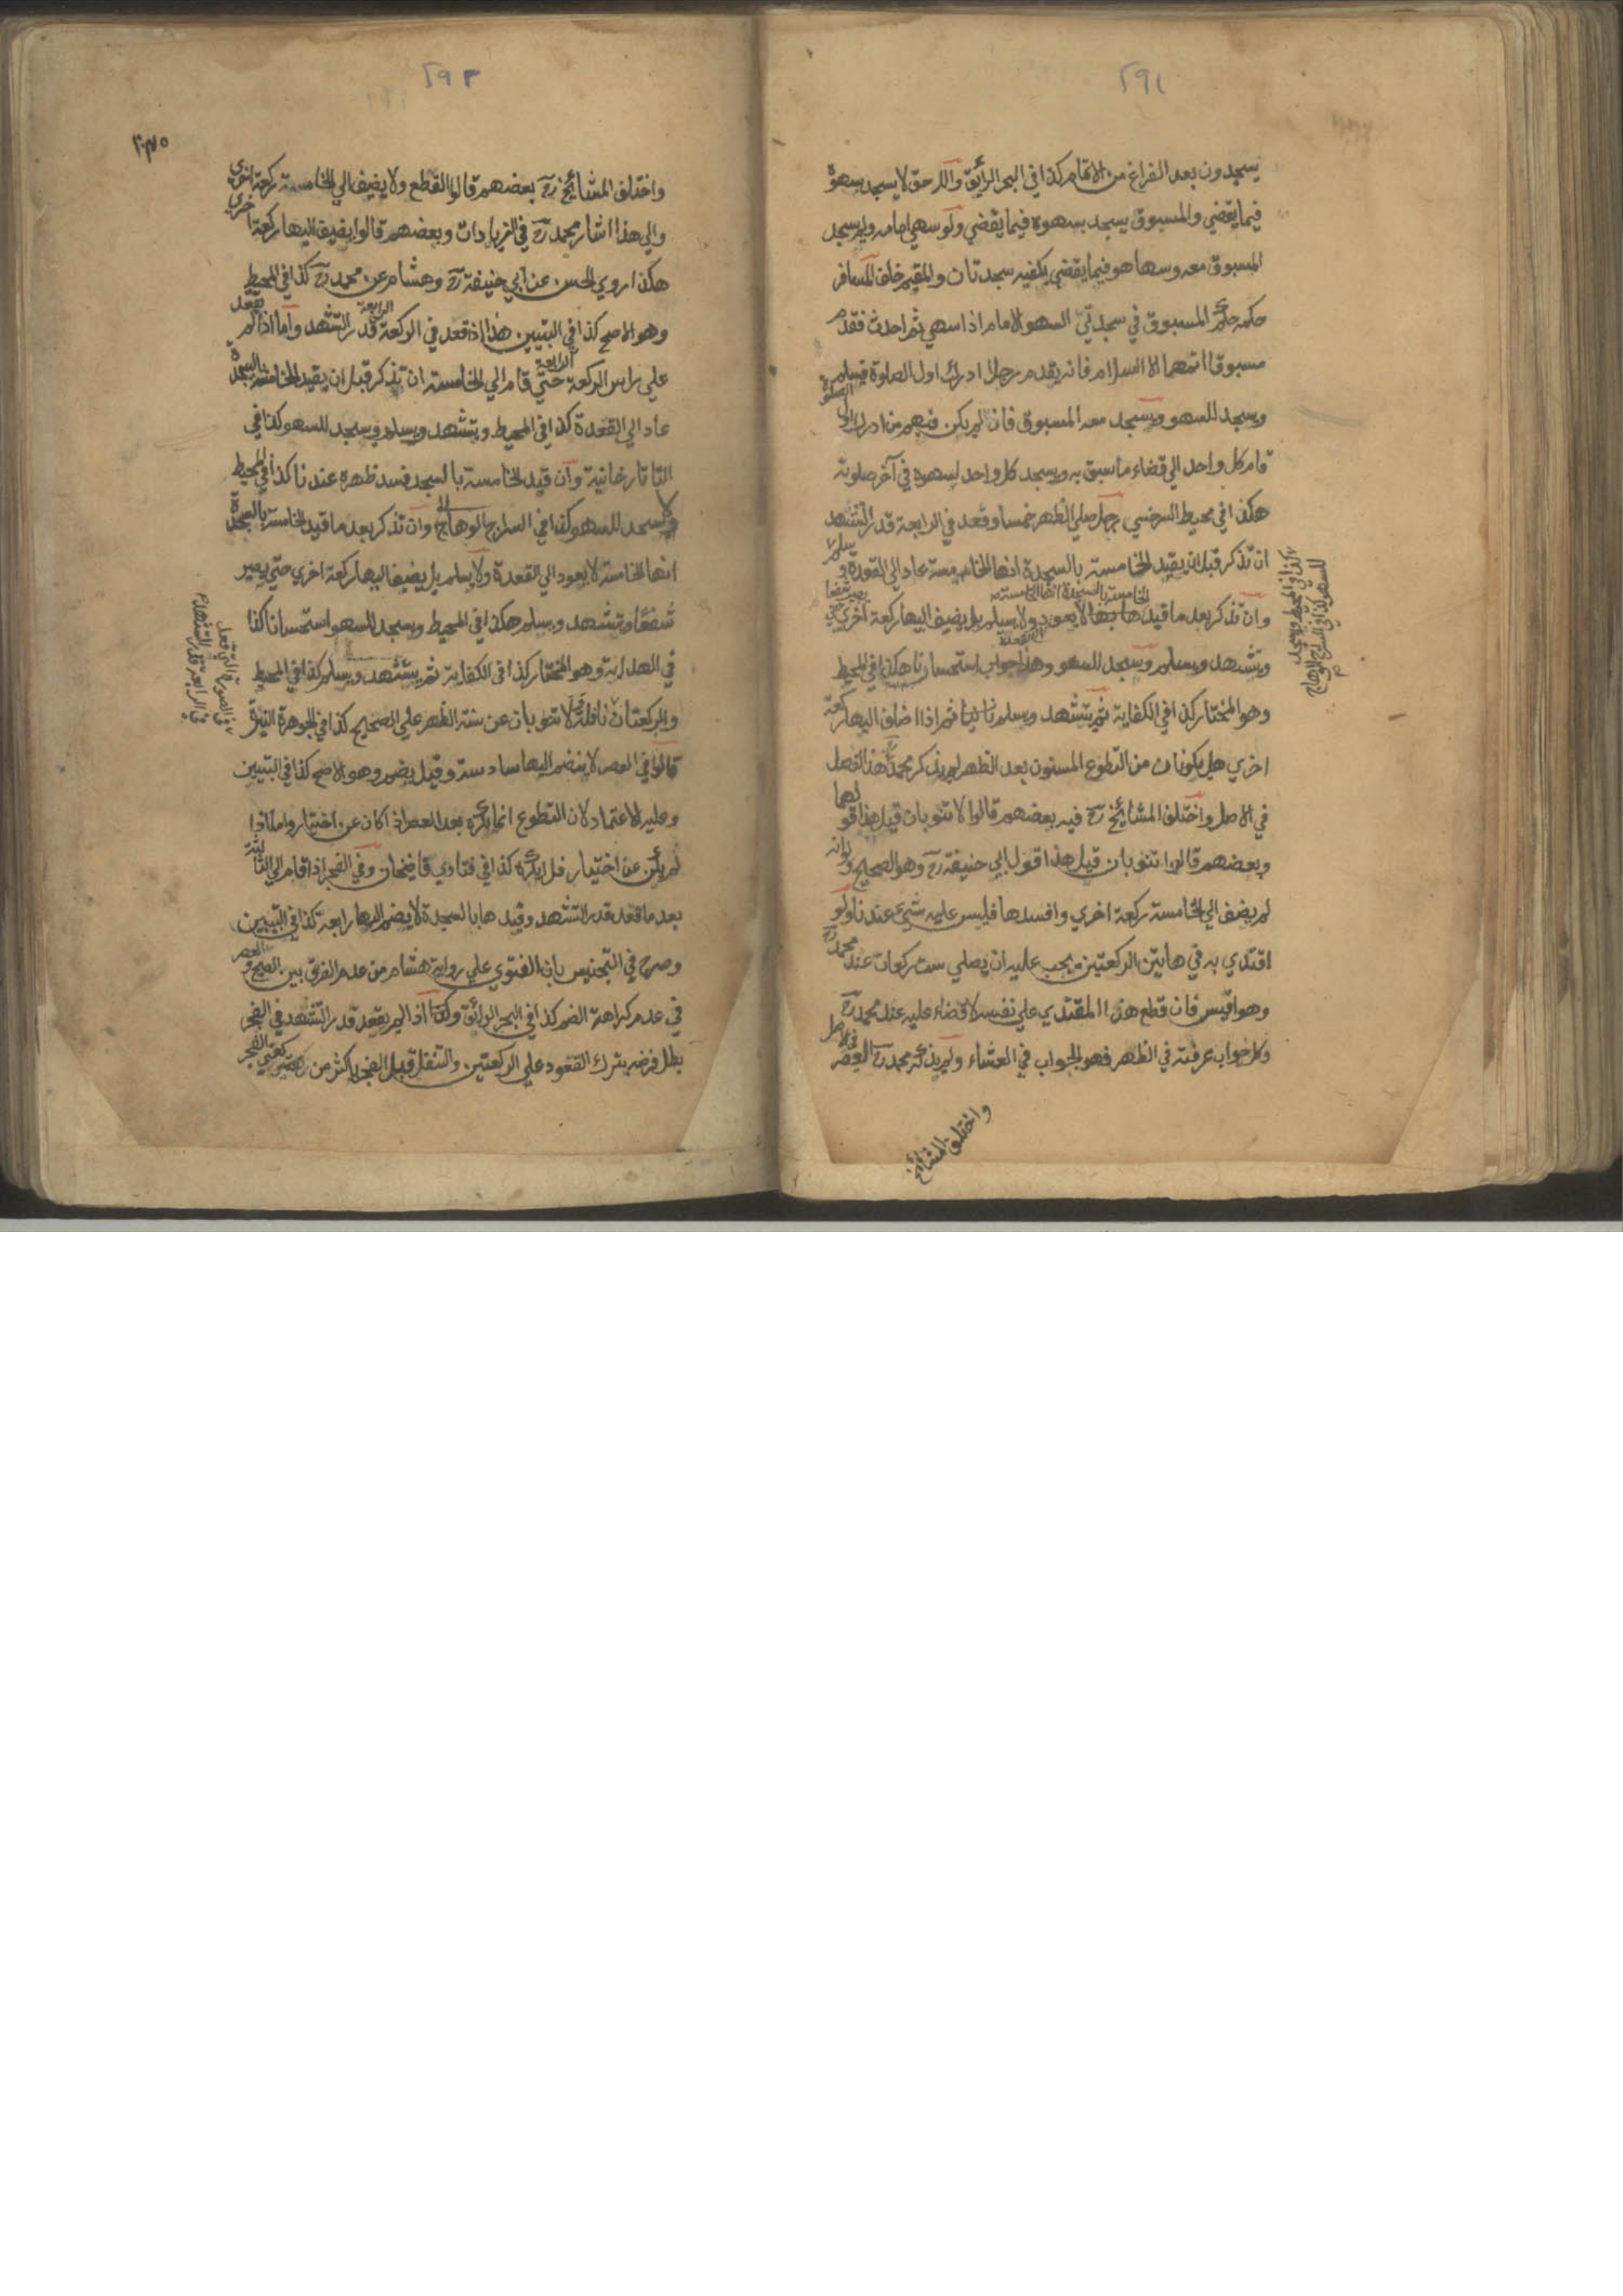 ٢٩١
يسجدون بعد الفراغ من الاتمام كذا في البحر الرائق واللاحق لا يسجد بسهوه
فيما يقضي والمسبوق يسجد بسهوه فيما يقضي ولو سهي امامه ولم يسجد
المسبوق معه وسها هو فيما يقضي يكفيه سجدتان والمقيم خلف المسافر
حكمه حكم المسبوق في سجدتي السهو الامام اذا سهي ثم احدث فقدم
مسبوقا اتمها الا السلام فانه يقدم رجلا ادرك اول الصلوة فيسلم
ويسجد للسهو ويسجد معه المسبوق فان لم يكن فيهم من ادرك اول الصلوة
قام كل واحد الي قضاء ما سبق به ويسجد كل واحد لسهوه في آخر صلوته
هكذا في محيط السرخسي رجل صلي الظهر خمسا وقعد في الرابعة قدر التشهد
ان تذكر قبل ان يقيد الخامسة بالسجدة انها الخامسة عاد الي القعدة و يسلم
كذا في المحيط ويسجد
للسهو كذا في السراج الوهاج
وان تذكر بعد ما قيد الخامسة بالسجدة انها الخامسة لا يعود الي القعدة ولا يسلم بل يضيف اليها ركعة اخري حتي يصير شفعا
ويتشهد ويسلم ويسجد للسهو وهذا جواب استحسانا هكذا في المحيط
وهو المختار كذا في الكفاية ثم يتشهد ويسلم ثانيا ثم اذا اضاف اليها ركعة
اخري هل يكونان من التطوع المسنون بعد الظهر لم يذكر محمد هذا الفصل
في الاصل واختلف المشائخ رح فيه بعضهم قالوا لا تنوبان قيل هذا قولهما
وبعضهم قالوا تنوبان قيل هذا قول ابي حنيفة رح وهو الصحيح ولو انه
لم يضف الي الخامسة ركعة اخري وافسدها فليس عليه شيئ عندنا ولو
اقتدي به في هاتين الركعتين يجب عليه ان يصلي ست ركعات عند محمد رح
وهو اقيس فان قطع هذا المقتدي علي نفسه لا قضاء عليه عند محمد رح
وكل جواب عرفته في الظهر فهو الجواب في العشاء ولم يذكر محمد رح العصر في الاصل
واختلف المشائخ
٢٩٢
واختلف المشائخ رح بعضهم قالوا القطع ولا يضيف الي الخامسة ركعة اخري
والي هذا اشار محمد رح في الزيادات وبعضهم قالوا يضيف اليها ركعة اخري
هكذا روي الحسن عن ابي حنيفة رح وهشام عن محمد رح كذا في المحيط
وهو الاصح كذا في التبيين هذا اذا قعد في الركعة الرابعة قدر التشهد واما اذا لم يقعد
علي راس الركعة الرابعة حتي قام الي الخامسة ان تذكر قبل ان يقيد الخامسة بالسجدة
عاد الي القعدة كذا في المحيط ويتشهد ويسلم ويسجد للسهو كذا في
التاتارخانية وان قيد الخامسة بالسجد فسد ظهره عندنا كذا في المحيط
ولا يسجد للسهو كذا في السراج الوهاج وان تذكر بعد ما قيد الخامسة بالسجدة
انها الخامسة لا يعود الي القعدة ولا يسلم بل يضيف اليها ركعة اخري حتي يصير
شفعا ويتشهد ويسلم هكذا في المحيط ويسجد للسهو استحسانا كذا
في الهداية وهو المختار كذا في الكفاية ثم يتشهد ويسلم كذا في المحيط
والركعتان نافلة ولا تنوبان عن سنة الظهر علي الصحيح كذا في الجوهرة النيرة
قالوا في العصر لا ينضم اليها سادسة وقيل يضم وهو الاصح كذا في التبيين
وعليه الاعتماد لان التطوع انما يكره بعد العصر اذا كان عن اختيار واما اذا
لم يكن عن اختيار فلا يكره كذا في فتاوي قاضيخان وفي الفجر اذا قام الي الثالثة
بعد ما قعد قدر التشهد وقيدها بالسجدة لا يضم اليها رابعة كذا في التبيين
وصرح في التجنيس بان الفتوي علي رواية هشام من عدم الفرق بين الصبح والعصر
في عدم كراهة الضم كذا في البحر الرائق وكذا اذا لم يقعد قدر التشهد في الفجر
بطل فرضه بترك القعود علي الركعتين والتنفل قبل الفجر باكثر من ركعتي الفجر
في الصورة التي قعد
في الرابعة قدر التشهد